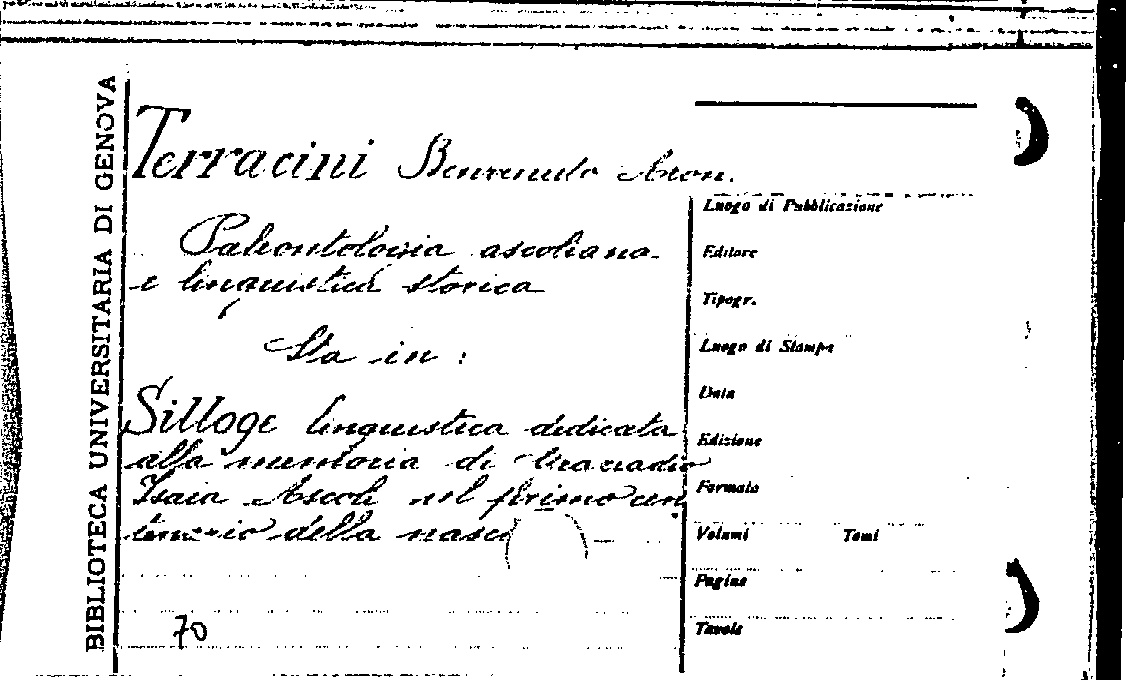 BIBLIOTECA UNIVERSITARIA DI GENOVA
Terracini Benvenuto Aron.
Paleontologia ascoliana
e linguistica storica
Sta in :
Silloge linguistica dedicata
alla memoria di Graziadio
Isaia Ascoli nel primo cen
tenario della nasci
70
Luogo di Pubblicazione
Editore
Tipogr.
Luogo di Stampa
Data
Edizione
Formato
Volumi Tomi
Pagine
Tavole